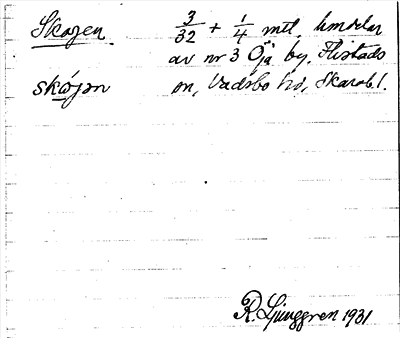 Skogen. 3/32 + 1/4 mtl. hemdelar
av nr 3 Öjä by, Flistads
skójən sn, Vadsbo hd, Skarab. l.
R. Ljunggren 1931